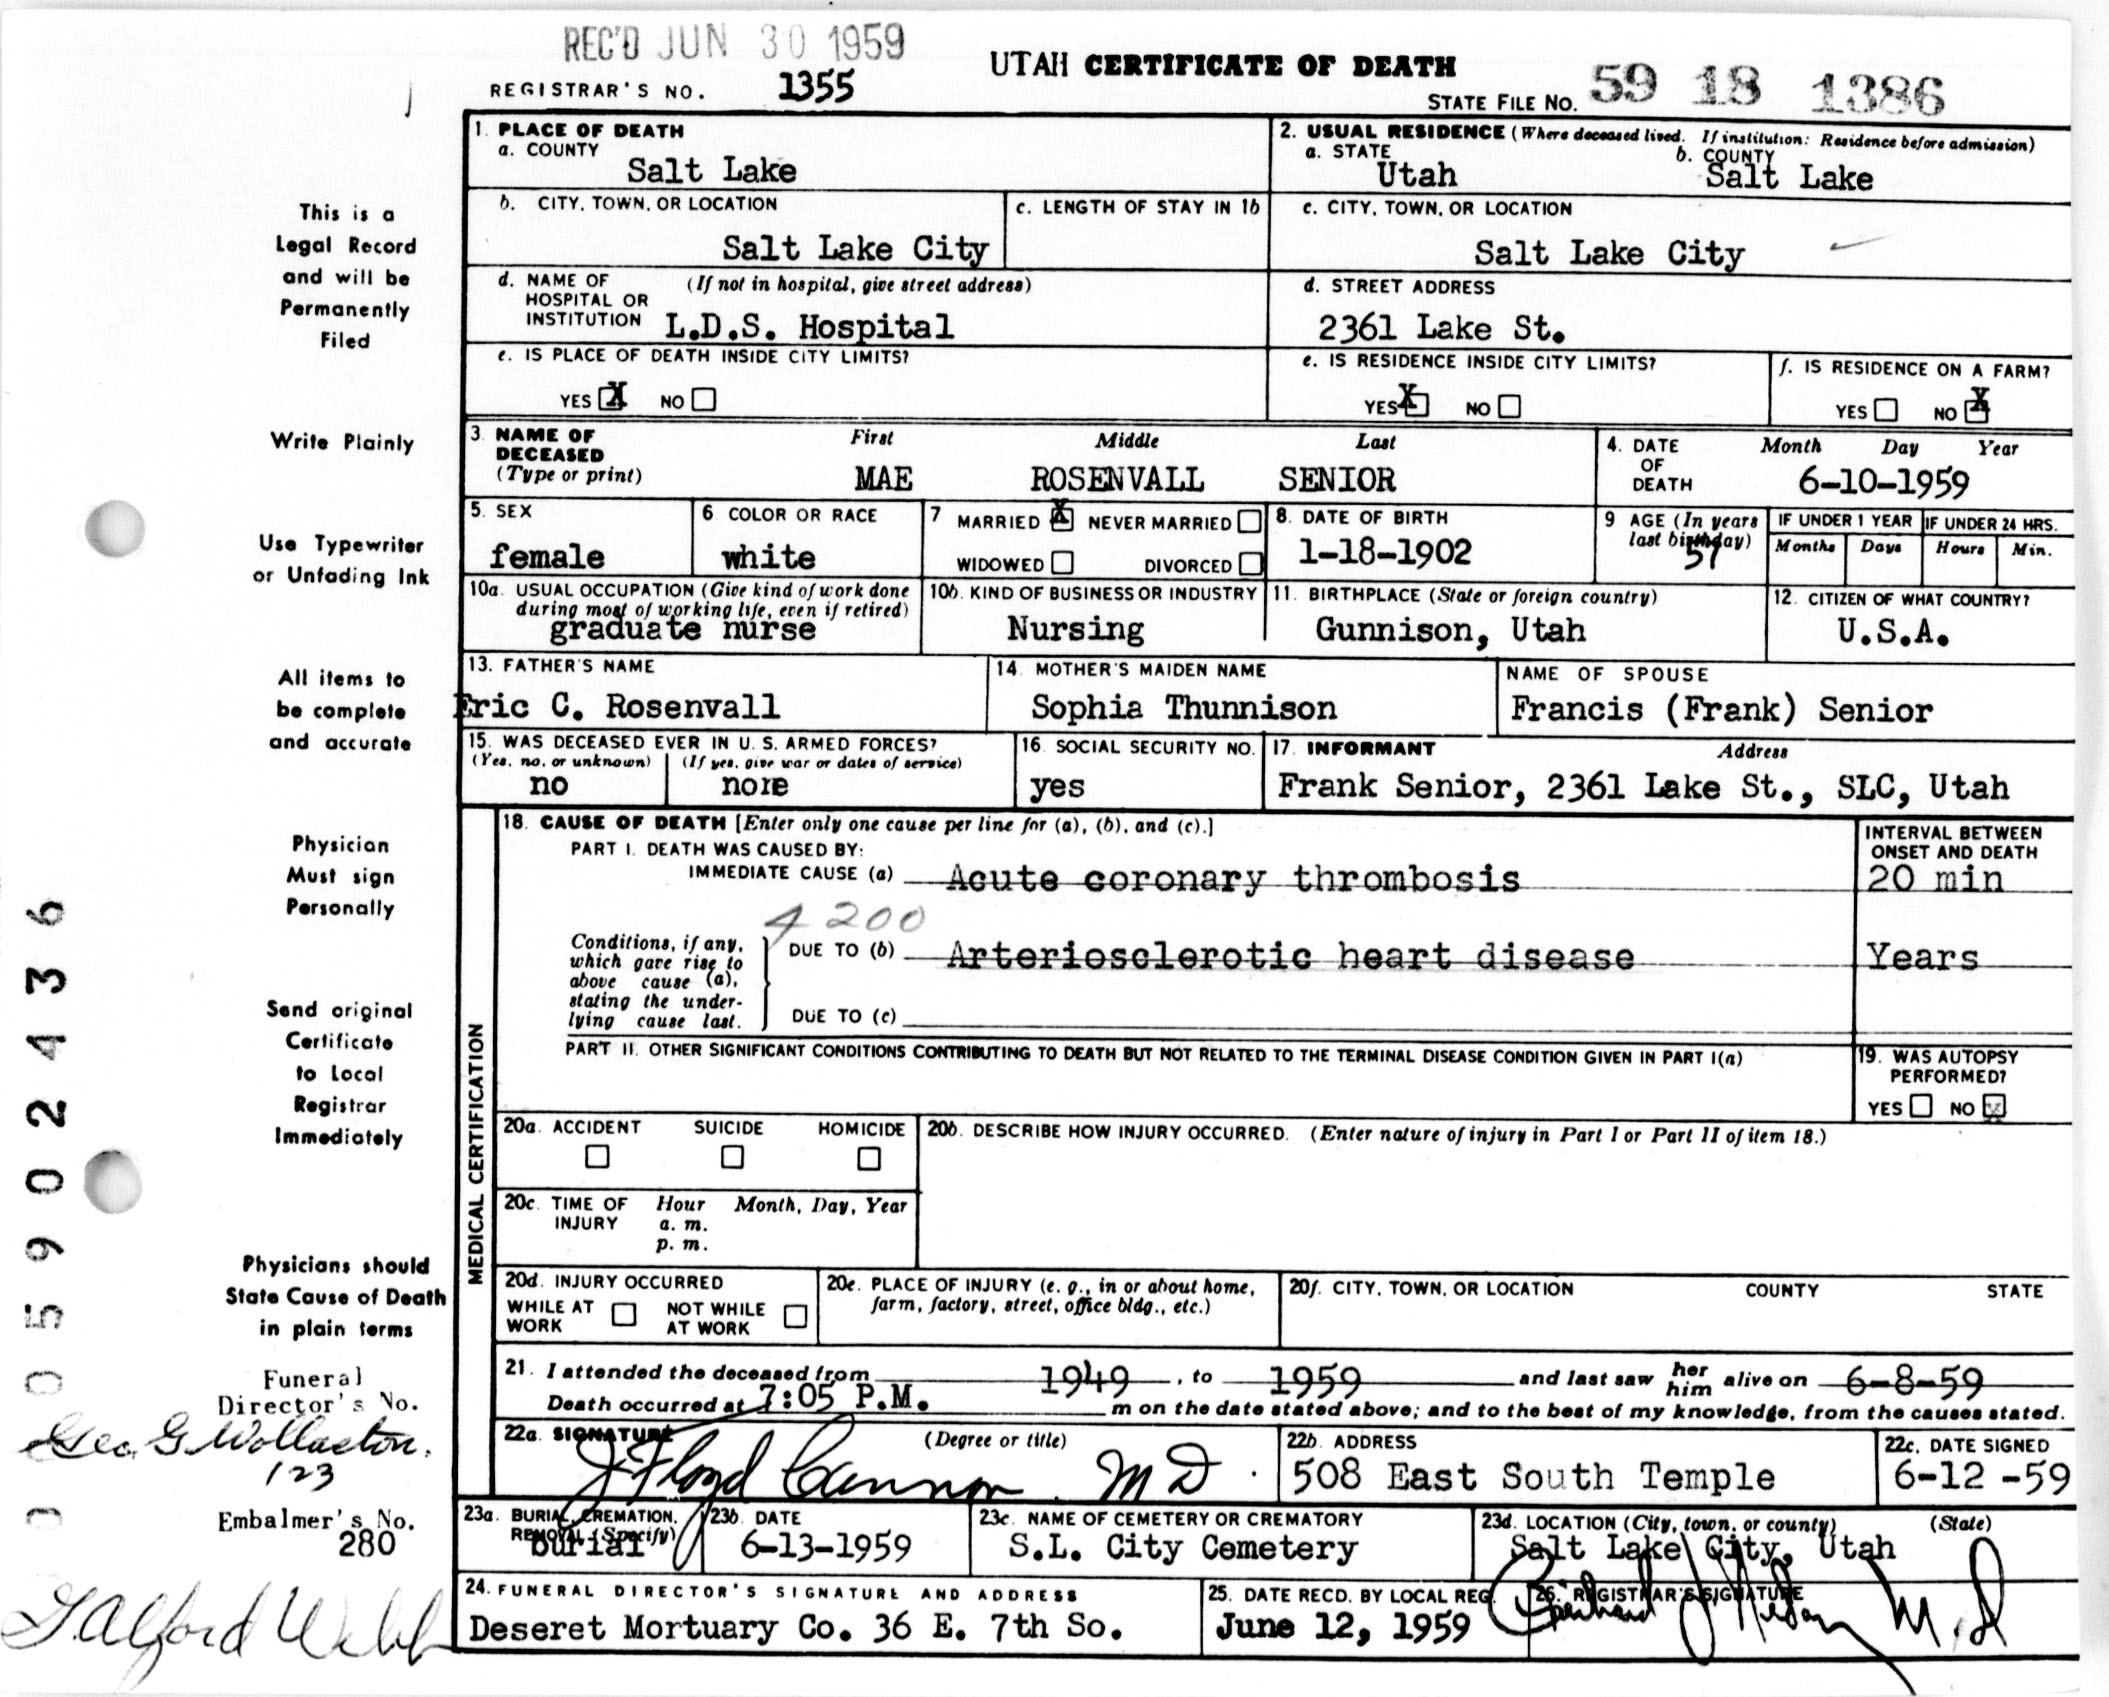 REC'D JUN 30 1959
UTAH CERTIFICATE OF DEATH
REGISTRAR'S NO. 1355
STATE FILE NO. 59 18 1386
1. PLACE OF DEATH
a. COUNTY
Salt Lake
2. USUAL RESIDENCE (Where deceased lived. If institution: Residence before admission)
a. STATE b. COUNTY
Utah Salt Lake
b. CITY, TOWN, OR LOCATION
Salt Lake City
c. LENGTH OF STAY IN 1b
c. CITY, TOWN, OR LOCATION
Salt Lake City
d. NAME OF (If not in hospital, give street address)
HOSPITAL OR
INSTITUTION L.D.S. Hospital
d. STREET ADDRESS
2361 Lake St.
e. IS PLACE OF DEATH INSIDE CITY LIMITS?
YES X NO
e. IS RESIDENCE INSIDE CITY LIMITS?
YES X NO
f. IS RESIDENCE ON A FARM?
YES NO X
3. NAME OF First Middle Last
DECEASED
(Type or print) MAE ROSENVALL SENIOR
4. DATE Month Day Year
OF
DEATH 6-10-1959
5. SEX
female
6 COLOR OR RACE
white
7 MARRIED X NEVER MARRIED
WIDOWED DIVORCED
8. DATE OF BIRTH
1-18-1902
9 AGE (In years
last birthday)
57
IF UNDER 1 YEAR IF UNDER 24 HRS.
Months Days Hours Min.
10a. USUAL OCCUPATION (Give kind of work done
during most of working life, even if retired)
graduate nurse
10b. KIND OF BUSINESS OR INDUSTRY
Nursing
11. BIRTHPLACE (State or foreign country)
Gunnison, Utah
12. CITIZEN OF WHAT COUNTRY?
U.S.A.
13. FATHER'S NAME
Eric C. Rosenvall
14. MOTHER'S MAIDEN NAME
Sophia Thunnison
NAME OF SPOUSE
Francis (Frank) Senior
15. WAS DECEASED EVER IN U. S. ARMED FORCES?
(Yes, no, or unknown) (If yes, give war or dates of service)
no none
16. SOCIAL SECURITY NO.
yes
17. INFORMANT Address
Frank Senior, 2361 Lake St., SLC, Utah
MEDICAL CERTIFICATION
18. CAUSE OF DEATH [Enter only one cause per line for (a), (b), and (c).]
PART I. DEATH WAS CAUSED BY:
IMMEDIATE CAUSE (a) Acute coronary thrombosis
INTERVAL BETWEEN
ONSET AND DEATH
20 min
4200
Conditions, if any,
which gave rise to
above cause (a),
stating the under-
lying cause last.
DUE TO (b) Arteriosclerotic heart disease
Years
DUE TO (c)
PART II. OTHER SIGNIFICANT CONDITIONS CONTRIBUTING TO DEATH BUT NOT RELATED TO THE TERMINAL DISEASE CONDITION GIVEN IN PART I(a)
19. WAS AUTOPSY
PERFORMED?
YES NO X
20a. ACCIDENT SUICIDE HOMICIDE
20b. DESCRIBE HOW INJURY OCCURRED. (Enter nature of injury in Part I or Part II of item 18.)
20c. TIME OF Hour Month, Day, Year
INJURY a. m.
p. m.
20d. INJURY OCCURRED
WHILE AT NOT WHILE
WORK AT WORK
20e. PLACE OF INJURY (e. g., in or about home,
farm, factory, street, office bldg., etc.)
20f. CITY, TOWN, OR LOCATION COUNTY STATE
21. I attended the deceased from 1949, to 1959 and last saw her him alive on 6-8-59
Death occurred at 7:05 P.M. m on the date stated above; and to the best of my knowledge, from the causes stated.
22a. SIGNATURE (Degree or title)
J Floyd Cannon M D.
22b. ADDRESS
508 East South Temple
22c. DATE SIGNED
6-12-59
23a. BURIAL, CREMATION,
REMOVAL (Specify)
burial
23b. DATE
6-13-1959
23c. NAME OF CEMETERY OR CREMATORY
S.L. City Cemetery
23d. LOCATION (City, town, or county) (State)
Salt Lake City, Utah
24. FUNERAL DIRECTOR'S SIGNATURE AND ADDRESS
Deseret Mortuary Co. 36 E. 7th So.
25. DATE RECD. BY LOCAL REG.
June 12, 1959
26. REGISTRAR'S SIGNATURE
M.D
This is a
Legal Record
and will be
Permanently
Filed
Write Plainly
Use Typewriter
or Unfading Ink
All items to
be complete
and accurate
Physician
Must sign
Personally
Send original
Certificate
to Local
Registrar
Immediately
Physicians should
State Cause of Death
in plain terms
Funeral
Director's No.
Geo. G. Wollaston.
123
Embalmer's No.
280
Galford Webb
005902436